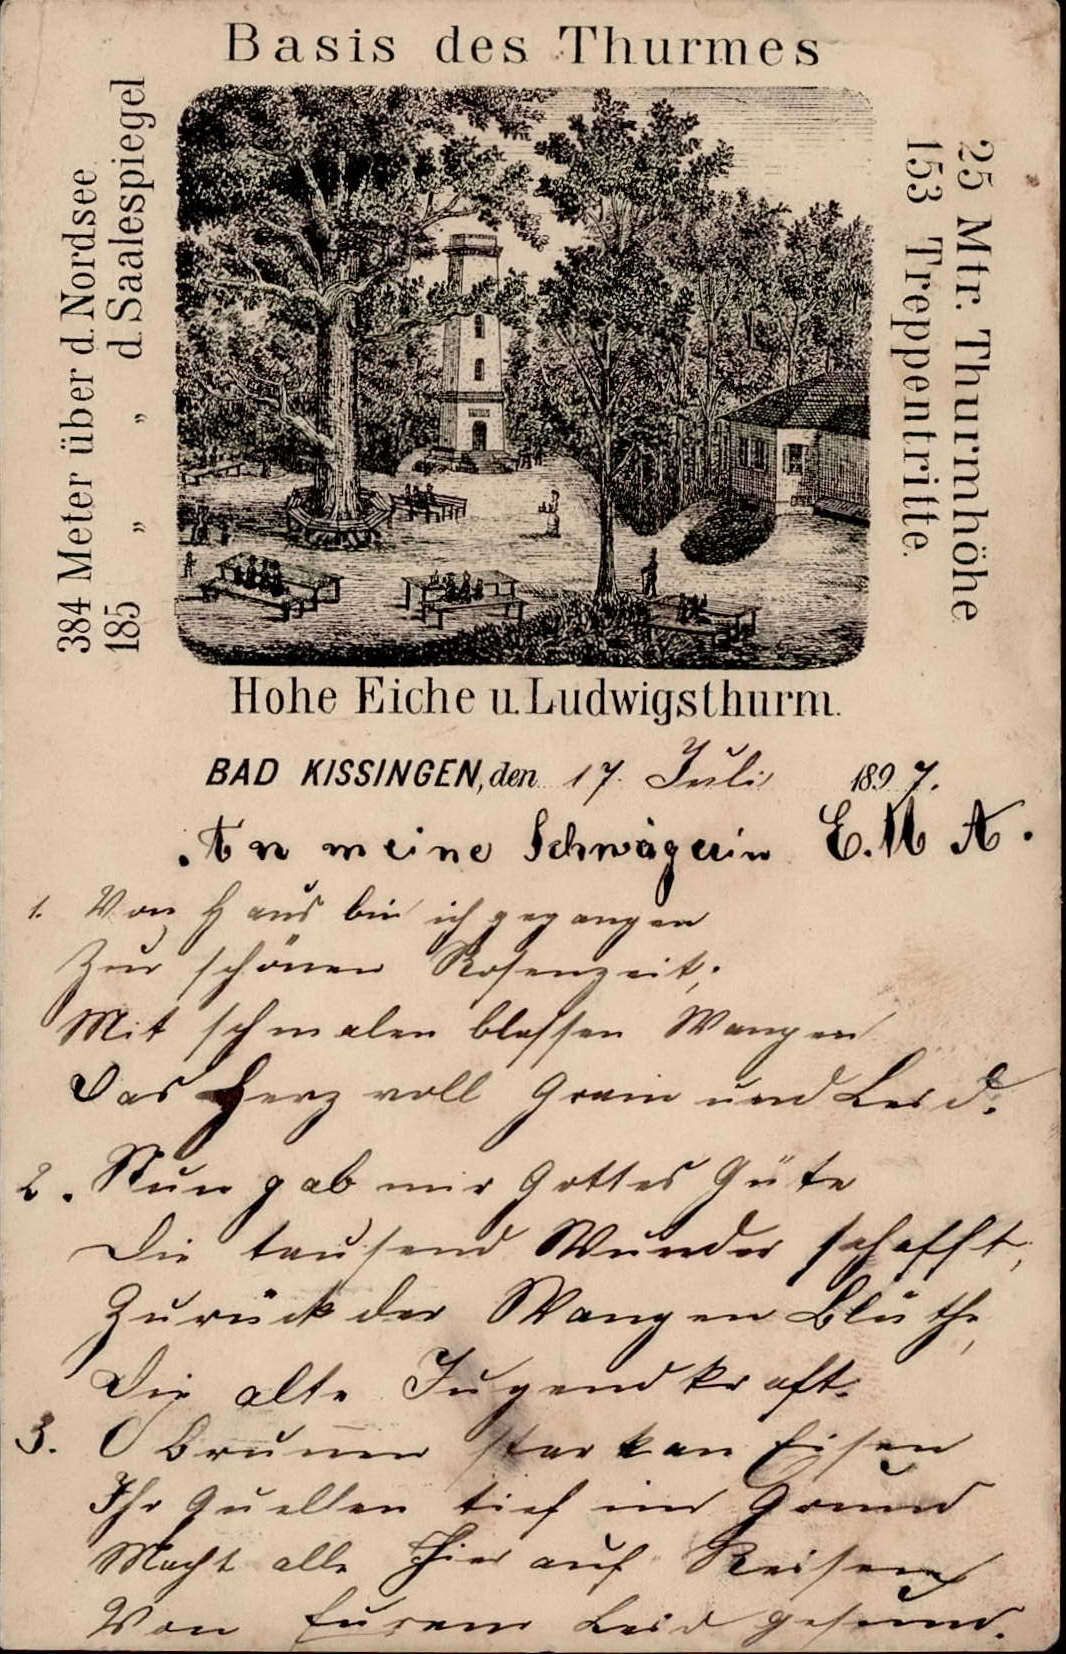 Basis des Thurmes
384 Meter über d. Nordsee
185 „ „ d. Saalespiegel
25 Mtr. Thurmhöhe
153 Treppentritte.
Hohe Eiche u. Ludwigsthurm.
BAD KISSINGEN, den 17. Juli 1897.
An meine Schwägerin E. M A.
1. Von Haus bin ich gegangen
Zur schönen Rosenzeit;
Mit schmalen blassen Wangen
Das Herz voll Gram und Leid.
2. Nun gab mir Gottes Güte
Die tausend Wunder schafft,
Zurück der Wangen Blüthe,
Die alte Jugendkraft.
3. O Brunnen stark an Eisen
Ihr Quellen tief im Grund
Macht alle hier auf Reisen
Von Eurem Leid gesund.